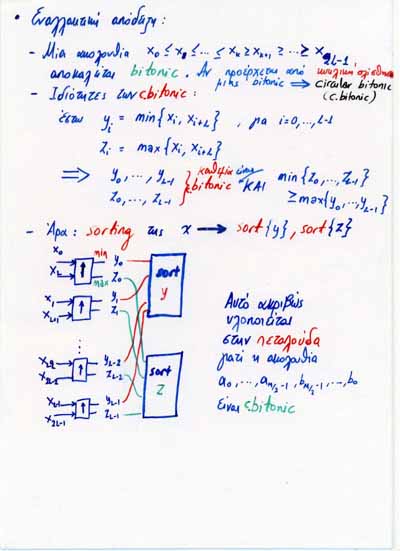 • Εναλλακτική απόδειξη:
– Μια ακολουθία x₀ ≤ x₁ ≤ ... ≤ xₖ ≥ xₖ₊₁ ≥ ... ≥ x₂L₋₁
αποκαλείται bitonic. Αν προέρχεται από κυκλική ολίσθηση
μιας bitonic ⟹ circular bitonic
(c.bitonic)
– Ιδιότητες των c.bitonic:
έστω yᵢ = min{xᵢ, xᵢ₊L} , για i=0,...,L-1
zᵢ = max{xᵢ, xᵢ₊L}
⟹ y₀, ..., y_{L-1}
z₀, ..., z_{L-1}
} καθεμία είναι
c.bitonic ΚΑΙ
min{z₀,...,z_{L-1}}
≥ max{y₀,...,y_{L-1}}
– Άρα: sorting της x ⟶ sort{y}, sort{z}
x₀ min y₀
x_L max z₀
sort
y
x₁ y₁
x_{L+1} z₁
⋮
y_{L-2}
z_{L-2}
sort
z
x_{L-1} y_{L-1}
x_{2L-1} z_{L-1}
Αυτό ακριβώς
υλοποιείται
στην πεταλούδα
γιατί η ακολουθία
a₀, ..., a_{n/2-1}, b_{n/2-1}, ..., b₀
είναι c.bitonic